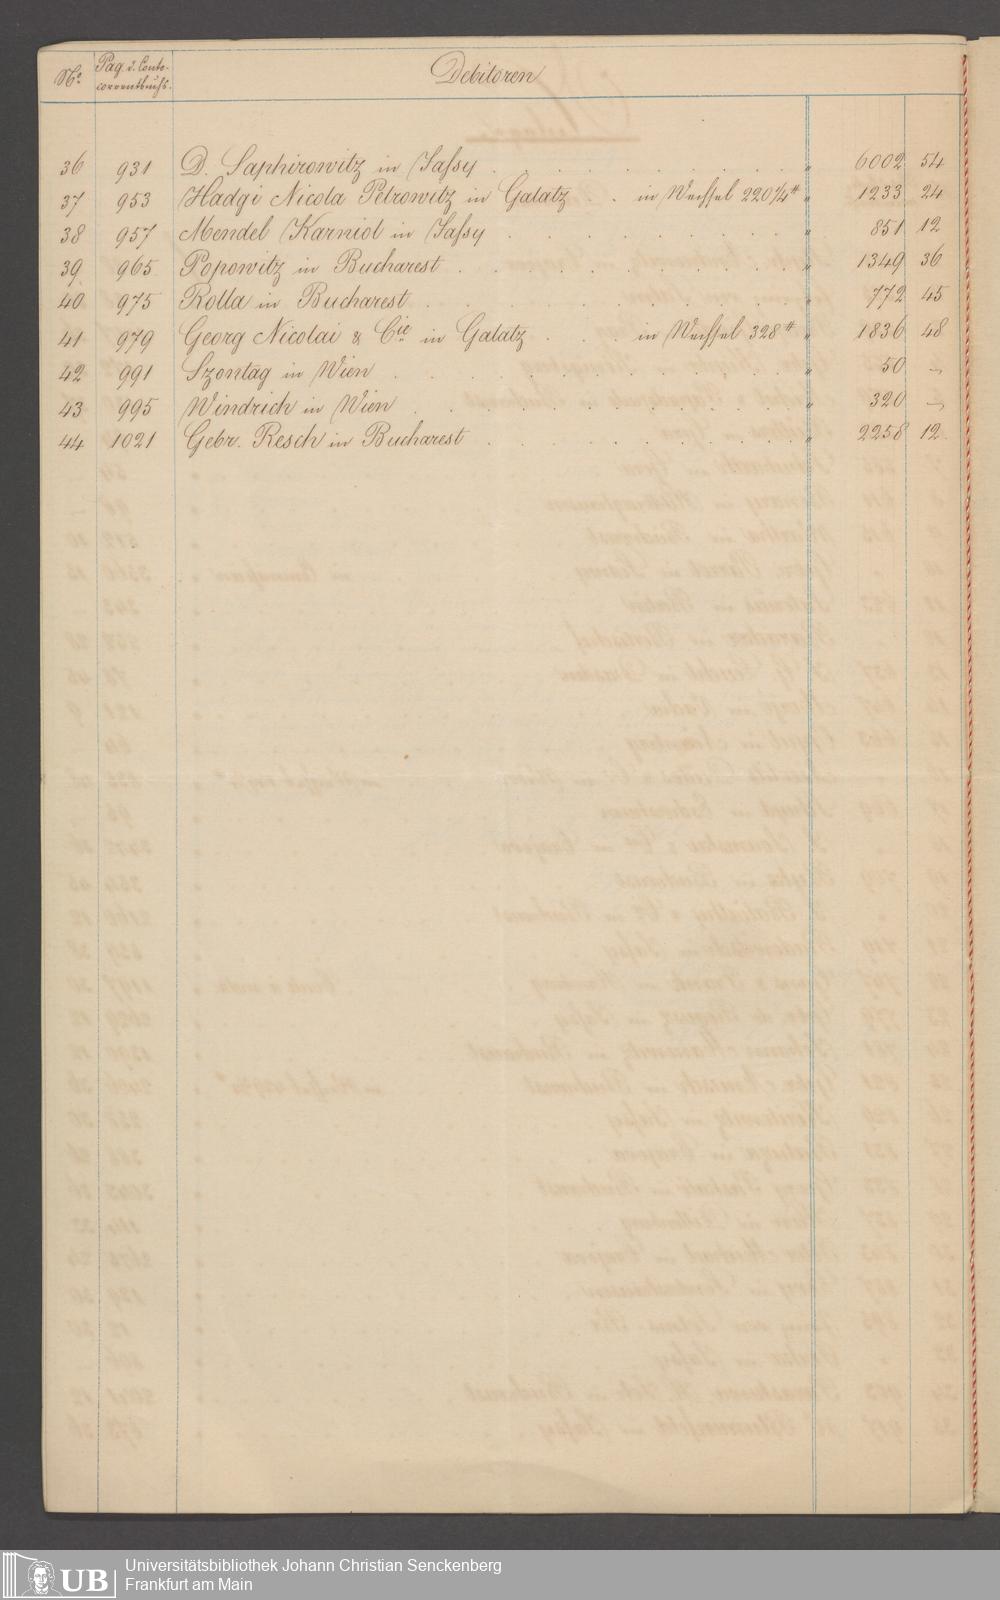 No. Pag. d. Conto- Debitoren
correntbuchs.
36 931 D. Saphirowitz in Jaſsy . . . . . . . . „ 6002 54
37 953 Hadgi Nicola Petrowitz in Galatz . . in Wechſel 220¼ # „ 1233 24
38 957 Mendel Karniol in Jaſsy . . . . . . . . „ 851 12
39 965 Popowitz in Bucharest . . . . . . . . . „ 1349 36
40 975 Rolla in Bucharest . . . . . . . . . . „ 772 45
41 979 Georg Nicolai & Cie in Galatz . . . in Wechſel 328 # „ 1836 48
42 991 Szontag in Wien . . . . . . . . . . „ 50 –
43 995 Windrich in Wien . . . . . . . . . . „ 320 –
44 1021 Gebr. Resch in Bucharest . . . . . . . . „ 2258 12
UB Universitätsbibliothek Johann Christian Senckenberg
Frankfurt am Main